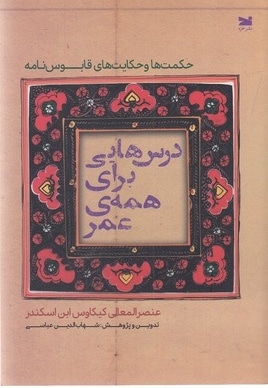 نشر خزه
حکمت‌ها و حکایت‌های قابوس‌نامه
درس‌هایی
برای
همه‌ی
عمر
عنصرالمعالی کیکاوس ابن اسکندر
تدوین و پژوهش: شهاب‌الدین عباسی